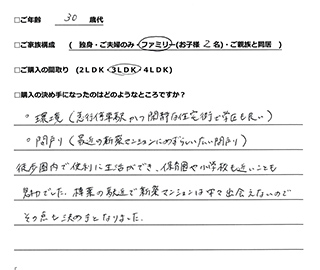 □ご年齢　30　歳代
□ご家族構成　(　独身・ご夫婦のみ・ファミリー(お子様 2名)・ご親族と同居　)
□ご購入の間取り　(2LDK・3LDK・4LDK)
□購入の決め手になったのはどのようなところですか?
○環境(急行停車駅かつ閑静な住宅街で学区も良い)
○間取り(最近の新築マンションにめずらしい広い間取り)
徒歩圏内で便利に生活ができ、保育園や小学校も近いことも
魅力でした。最近で新築マンションは中々出会えないので
その点も決め手となりました。